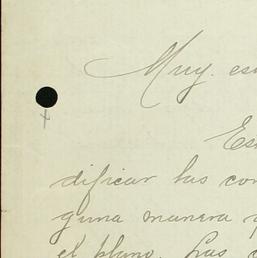 Muy. es
Es
dificar las con
guna manera
el plano. Las